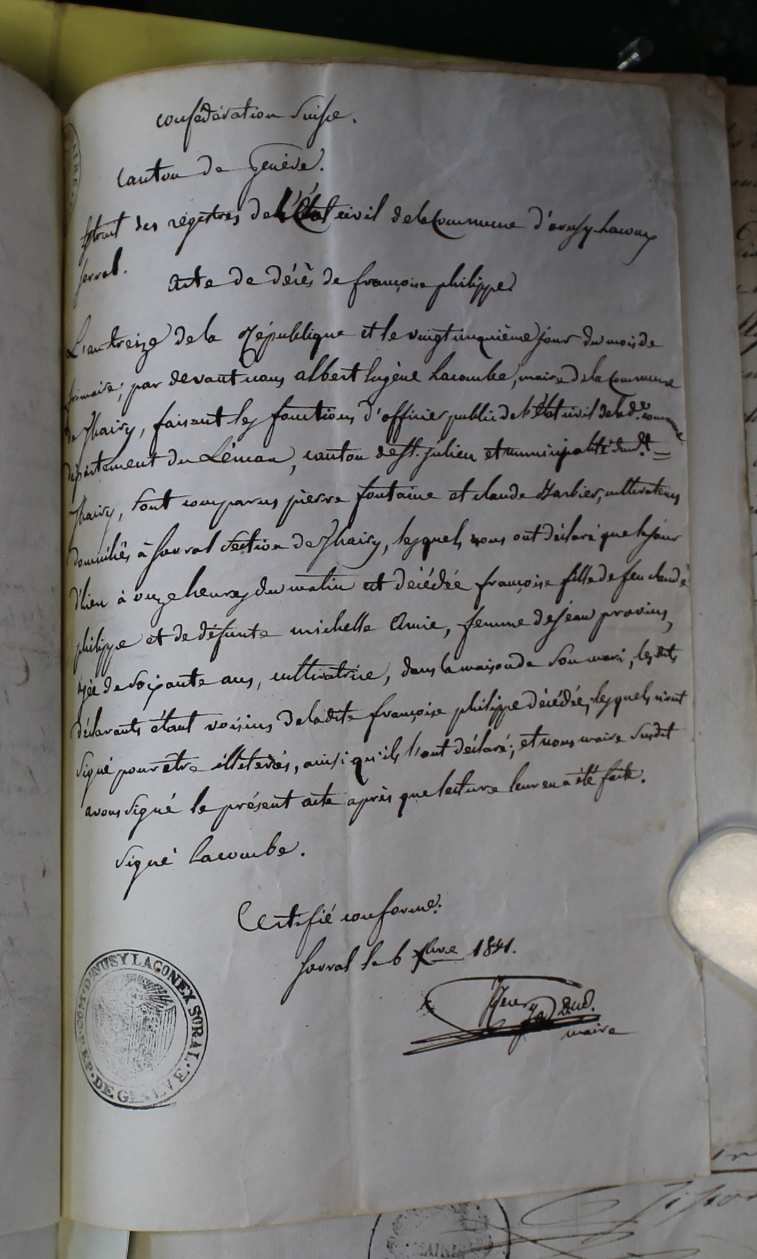 confédération Suisse.
Canton de Genève.
Extrait des régistres de l'État civil de la Commune d'avusy-Laconnex
Sorral.
Acte de décès de françoise philippe
L'an treize de la République et le vingtcinquième jour du mois de
frimaire; par devant nous albert Eugène Lacombe, maire de la Commune
de Thairy, faisant les fonctions d'officier public de l'État civil de lad.e commune
département du Léman, canton de St. julien et municipalité dud.t
Thairy, sont comparus pierre fontaine et claude Barbier, cultivateurs
domiciliés à Sorral Section de Thairy, lesquels nous ont déclaré que le jour
d'hier à onze heures du matin est décédée françoise fille de feu claude
philippe et de défunte michelle Amie, femme de jean provins,
agée de soixante ans, cultivatrice, dans la maison de son mari, les dits
déclarants étant voisins de la dite françoise philippe décédée, lesquels n'ont
signé pour être illeterés, ainsi qu'ils l'ont déclaré; et nous maire susdit
avons signé le présent acte après que lecture leur en a été faite.
Signé Lacombe.
Certifié conforme:
Sorral le 6 1841.
maire
COM. D'AVUSY LACONEX SORAL.
REP. DE GENEVE